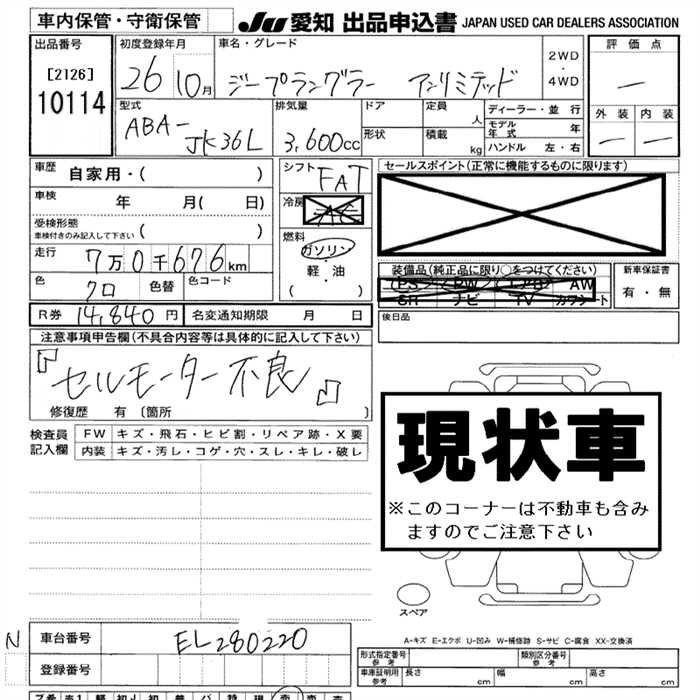 車内保管・守衛保管
JU 愛知 出品申込書 JAPAN USED CAR DEALERS ASSOCIATION
出品番号
[2126]
10114
初度登録年月
26 10月
車名・グレード
ジープラングラー アンリミテッド
2WD
・
4WD
評価点
―
外装 内装
― ―
型式
ABA-
JK36L
排気量
3,600cc
ドア
形状
定員
人
積載
kg
ディーラー・並行
モデル年式 年
ハンドル 左・右
車歴 自家用・( )
車検 年 月( 日)
受検形態
車検付きのみ記入して下さい ( )
走行 7万0千676km
色 クロ 色替 色コード
R券 14,840円 名変通知期限 月 日
シフト
FAT
冷房
AC
燃料
ガソリン
・
軽・油
( )
セールスポイント(正常に機能するものに限ります)
装備品(純正品に限り○をつけてください)
PS PW エアB AW
SR ナビ TV カワシート
新車保証書
有・無
後日品
注意事項申告欄(不具合内容等は具体的に記入して下さい)
『セルモーター不良』
修復歴 有 〔箇所 〕
検査員
記入欄
FW キズ・飛石・ヒビ割・リペア跡・X要
内装 キズ・汚レ・コゲ・穴・スレ・キレ・破レ
現状車
※このコーナーは不動車も含み
ますのでご注意下さい
スペア
A-キズ E-エクボ U-凹み W-補修跡 S-サビ C-腐食 XX-交換済
N
車台番号 EL280220
登録番号
形式指定番号
参考
類別区分番号
参考
車庫証明用
参考
長さ cm 幅 cm 高さ cm